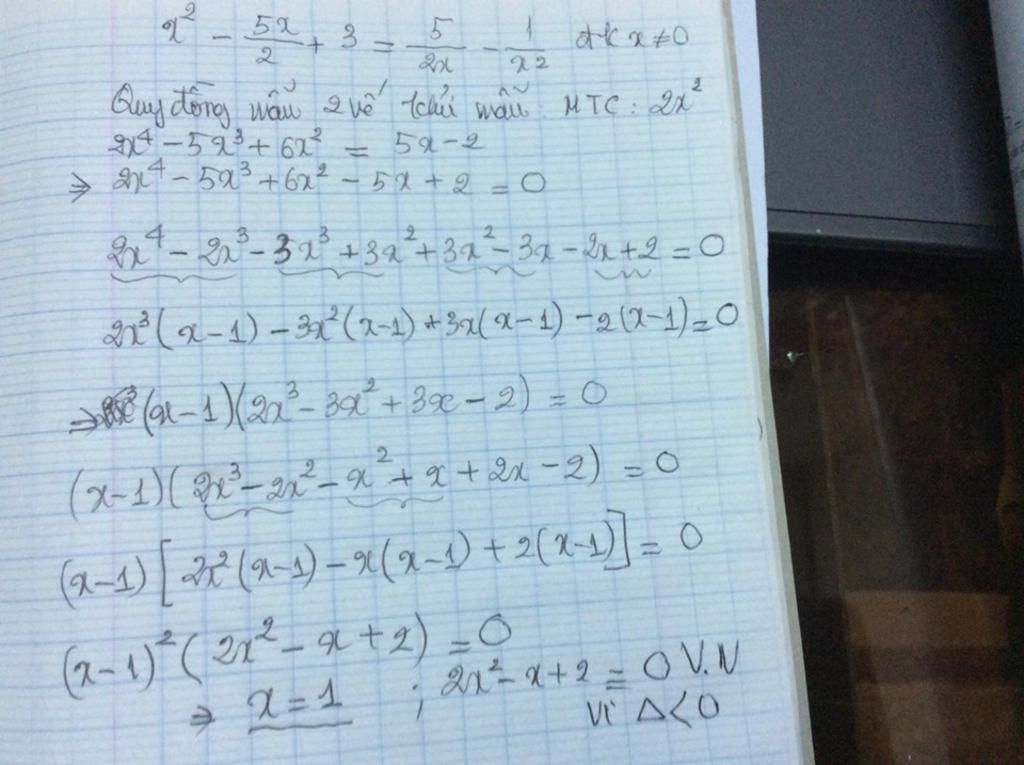 x² - 5x/2 + 3 = 5/2x - 1/x² đk x ≠ 0
Quy đồng mẫu 2 vế khử mẫu: MTC: 2x²
2x⁴ - 5x³ + 6x² = 5x - 2
⇒ 2x⁴ - 5x³ + 6x² - 5x + 2 = 0
2x⁴ - 2x³ - 3x³ + 3x² + 3x² - 3x - 2x + 2 = 0
2x³(x - 1) - 3x²(x - 1) + 3x(x - 1) - 2(x - 1) = 0
⇒ (x - 1)(2x³ - 3x² + 3x - 2) = 0
(x - 1)(2x³ - 2x² - x² + x + 2x - 2) = 0
(x - 1)[2x²(x - 1) - x(x - 1) + 2(x - 1)] = 0
(x - 1)²(2x² - x + 2) = 0
⇒ x = 1 ; 2x² - x + 2 = 0 V.N
Vì Δ < 0